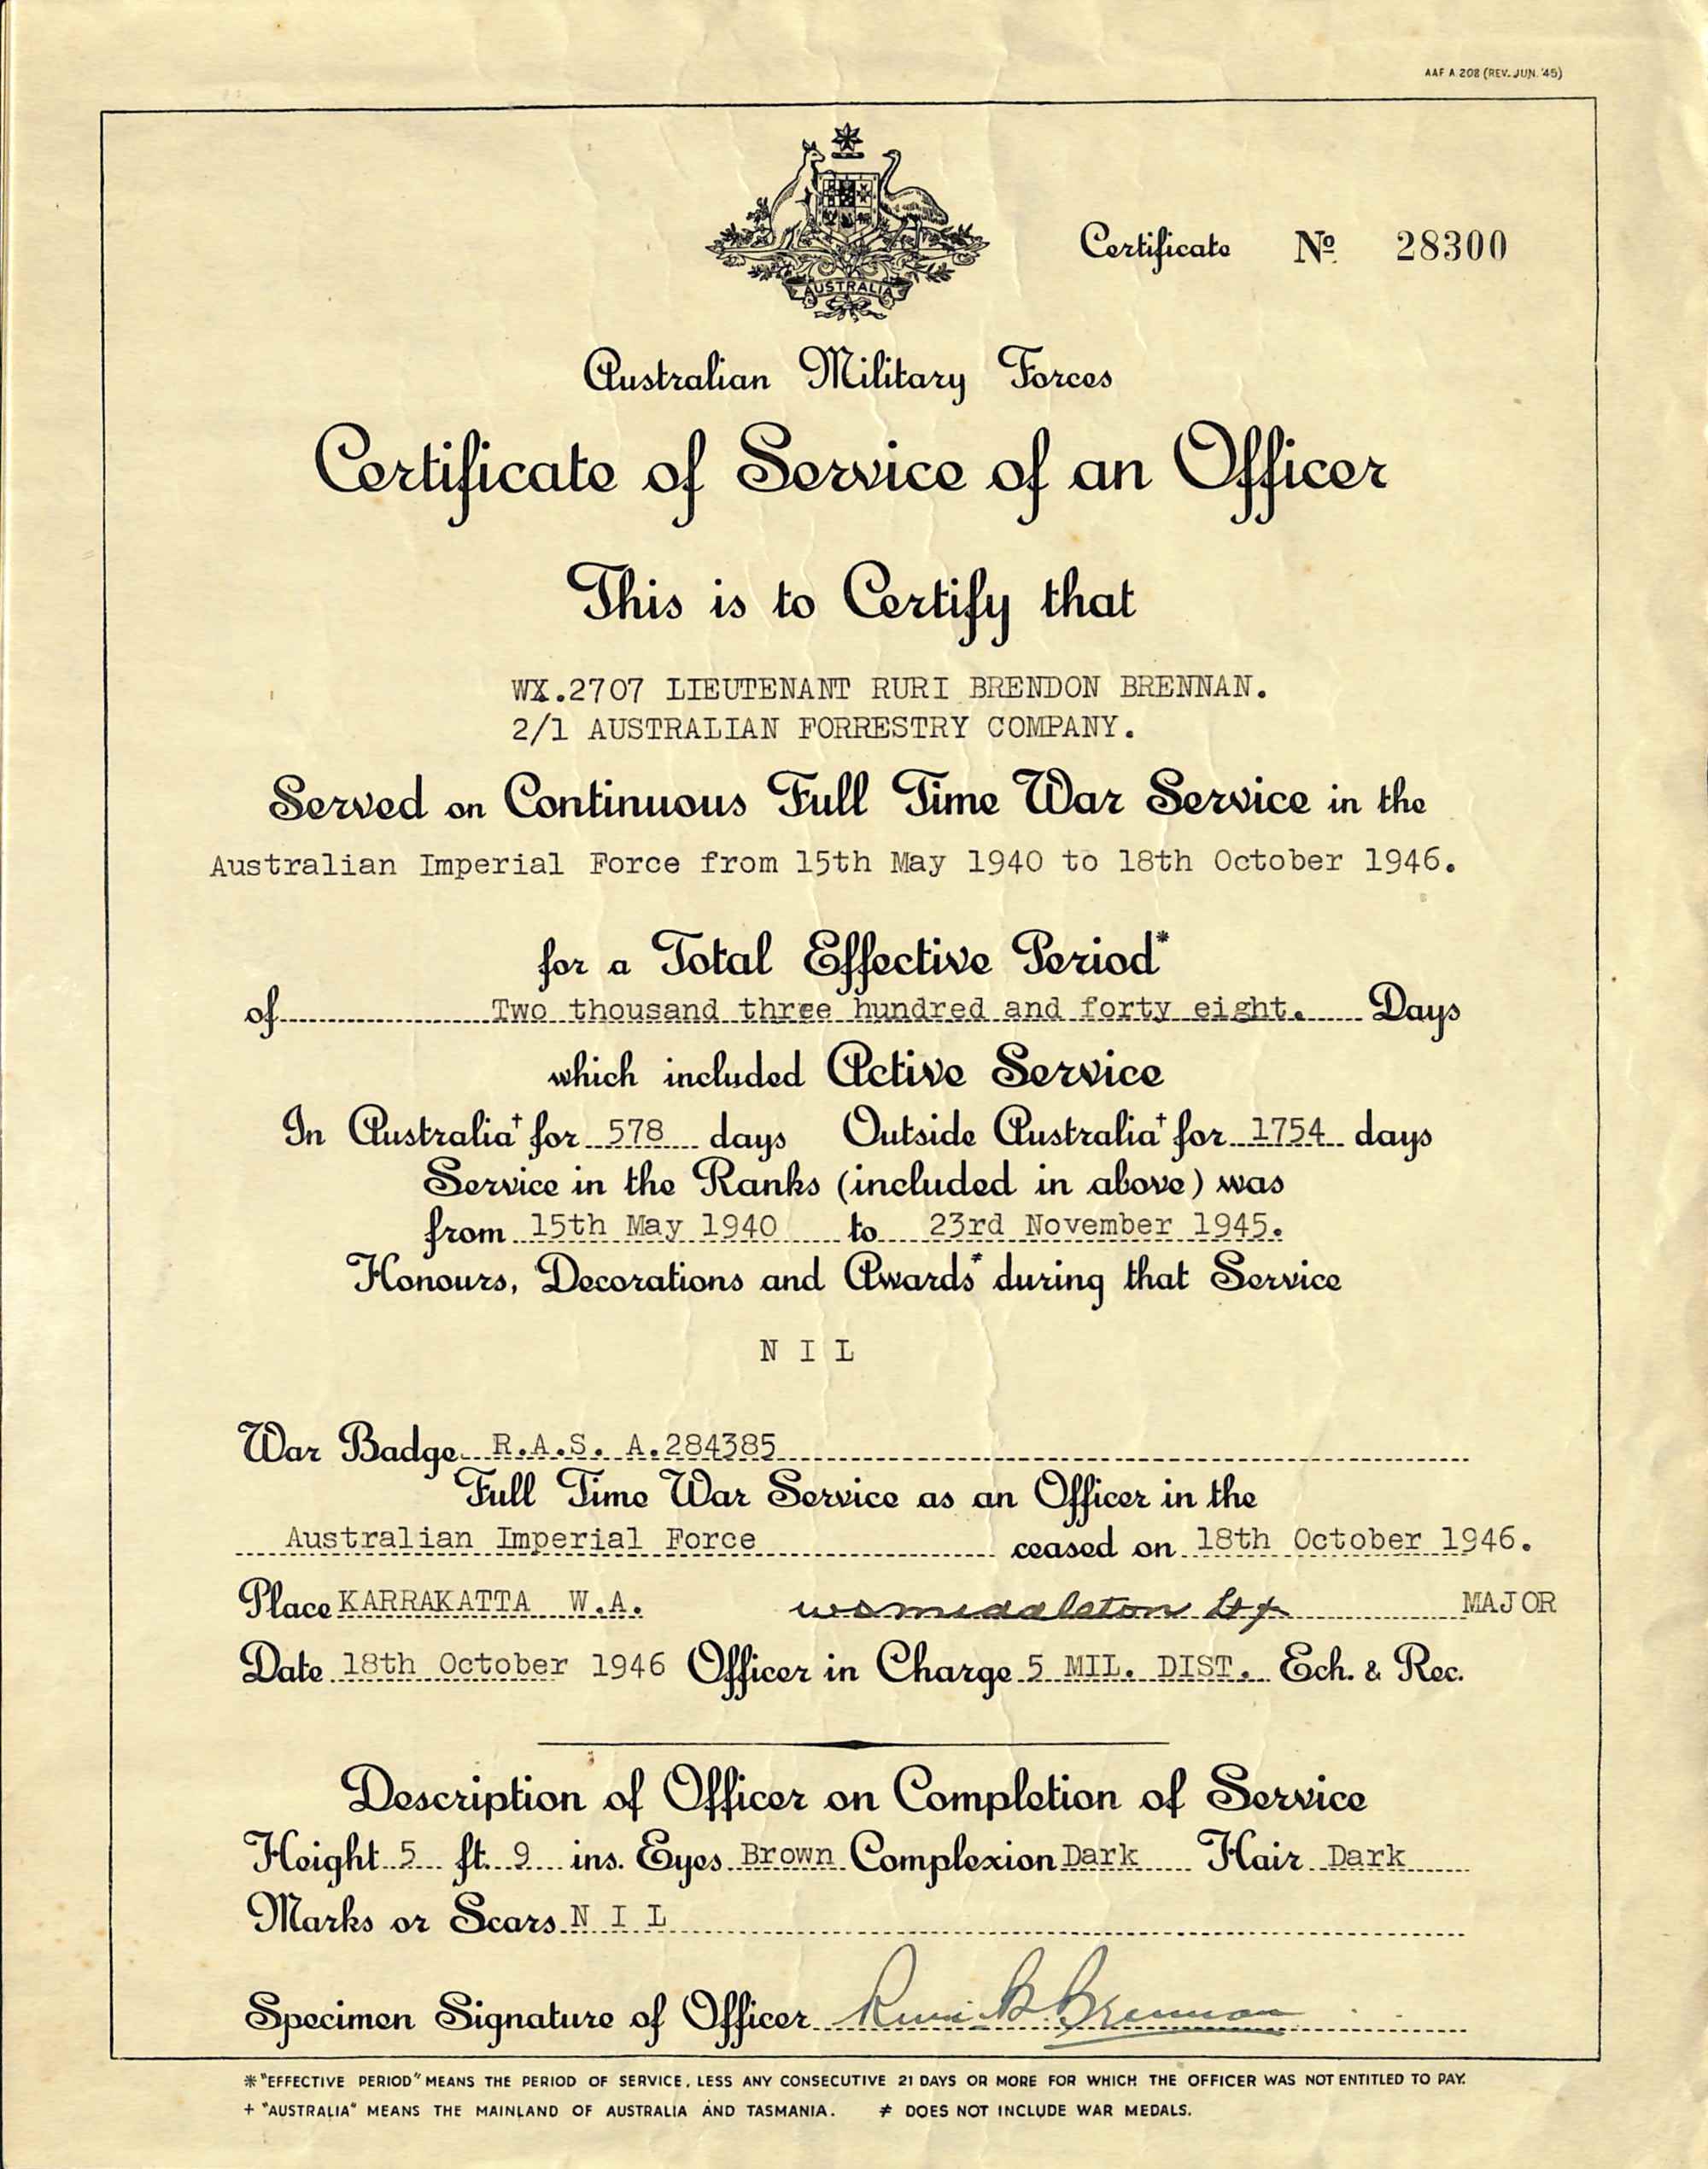 AAF A.208 (REV. JUN. '45)
AUSTRALIA
Certificate No 28300
Australian Military Forces
Certificate of Service of an Officer
This is to Certify that
WX.2707 LIEUTENANT RURI BRENDON BRENNAN.
2/1 AUSTRALIAN FORRESTRY COMPANY.
Served on Continuous Full Time War Service in the
Australian Imperial Force from 15th May 1940 to 18th October 1946.
for a Total Effective Period*
of Two thousand three hundred and forty eight. Days
which included Active Service
In Australia+ for 578 days Outside Australia+ for 1754 days
Service in the Ranks (included in above) was
from 15th May 1940 to 23rd November 1945.
Honours, Decorations and Awards≠ during that Service
N I L
War Badge R.A.S. A.284385
Full Time War Service as an Officer in the
Australian Imperial Force ceased on 18th October 1946.
Place KARRAKATTA W.A. MAJOR
Date 18th October 1946 Officer in Charge 5 MIL. DIST. Ech. & Rec.
Description of Officer on Completion of Service
Height 5 ft. 9 ins. Eyes Brown Complexion Dark Hair Dark
Marks or Scars N I L
Specimen Signature of Officer Ruri B. Brennan
* "EFFECTIVE PERIOD" MEANS THE PERIOD OF SERVICE, LESS ANY CONSECUTIVE 21 DAYS OR MORE FOR WHICH THE OFFICER WAS NOT ENTITLED TO PAY.
+ "AUSTRALIA" MEANS THE MAINLAND OF AUSTRALIA AND TASMANIA. ≠ DOES NOT INCLUDE WAR MEDALS.